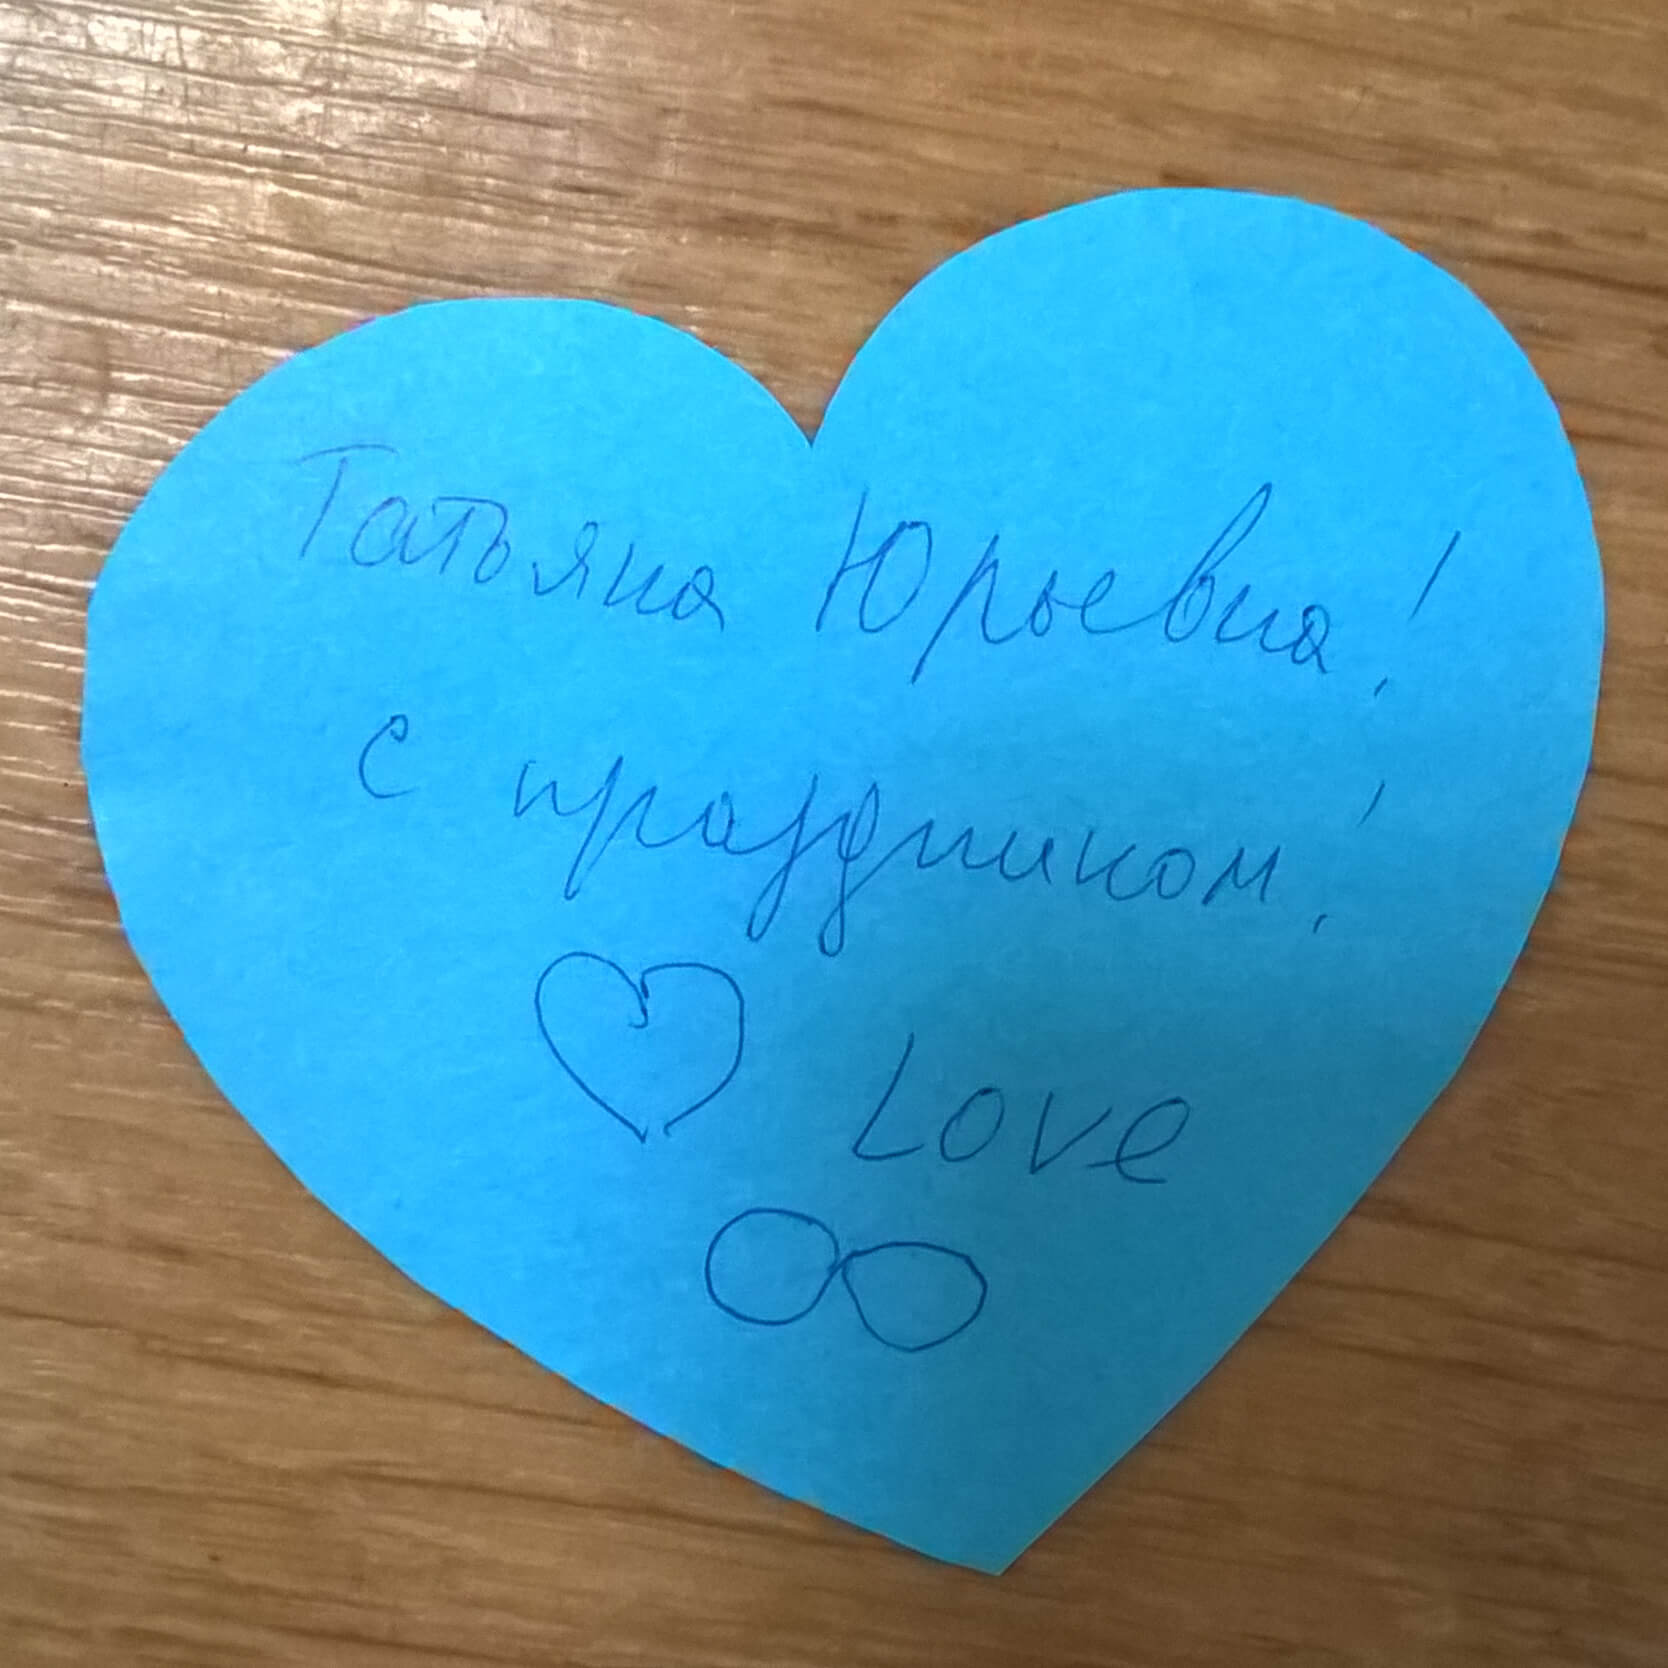 Татьяна Юрьевна!
с праздником!
Love